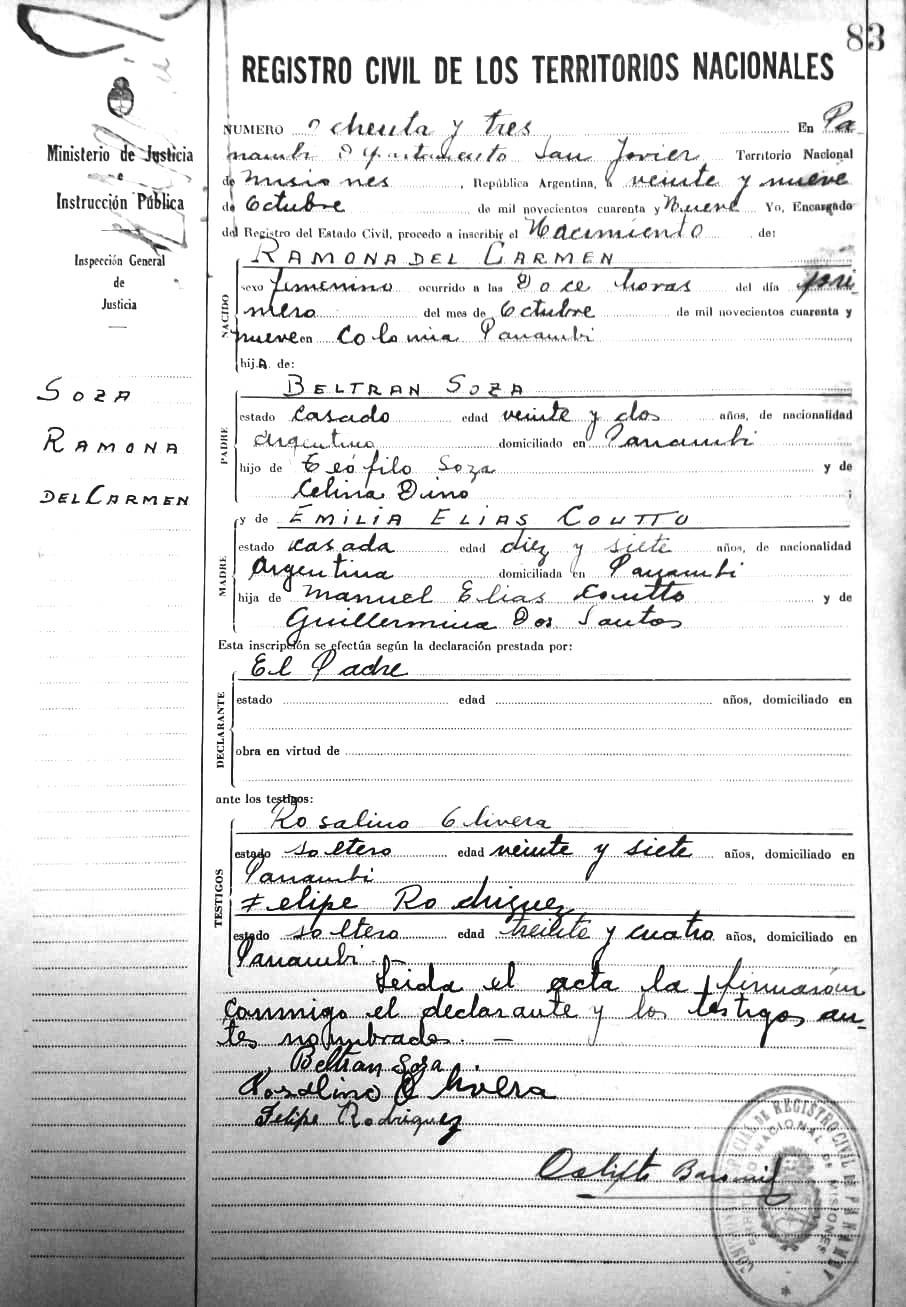 83
REGISTRO CIVIL DE LOS TERRITORIOS NACIONALES
Ministerio de Justicia
e
Instrucción Pública
Inspección General
de
Justicia
SOZA
RAMONA
DEL CARMEN
NUMERO Ochenta y tres En Pa
nambi Departamento San Javier Territorio Nacional
de Misiones, República Argentina, a veinte y nueve
de Octubre de mil novecientos cuarenta y Nueve Yo, Encargado
del Registro del Estado Civil, procedo a inscribir el Nacimiento de:
NACIDO
RAMONA DEL CARMEN
sexo femenino ocurrido a las Doce horas del día pri
mero del mes de Octubre de mil novecientos cuarenta y
nueve en Colonia Panambi
hijA de:
PADRE
BELTRAN SOZA
estado casado edad veinte y dos años, de nacionalidad
Argentino domiciliado en Panambi
hijo de Teófilo Soza y de
Celina Dino ;
MADRE
y de EMILIA ELIAS COUTTO
estado casada edad diez y siete años, de nacionalidad
Argentina domiciliada en Panambi
hija de Manuel Elias Coutto y de
Guillermina Dos Santos
Esta inscripción se efectúa según la declaración prestada por:
DECLARANTE
El Padre
estado edad años, domiciliado en
obra en virtud de
ante los testigos:
TESTIGOS
Rosalino Olivera
estado soltero edad veinte y siete años, domiciliado en
Panambi
Felipe Rodriguez
estado soltero edad treinte y cuatro años, domiciliado en
Panambi. —
Leida el acta la firmarón
conmigo el declarante y los testigos an-
tes nombrados. —
Beltran Soza
Rosalino Olivera
Felipe Rodriguez
Calixto
REGISTRO CIVIL DE PANAMBY
NACIONAL DE MISIONES